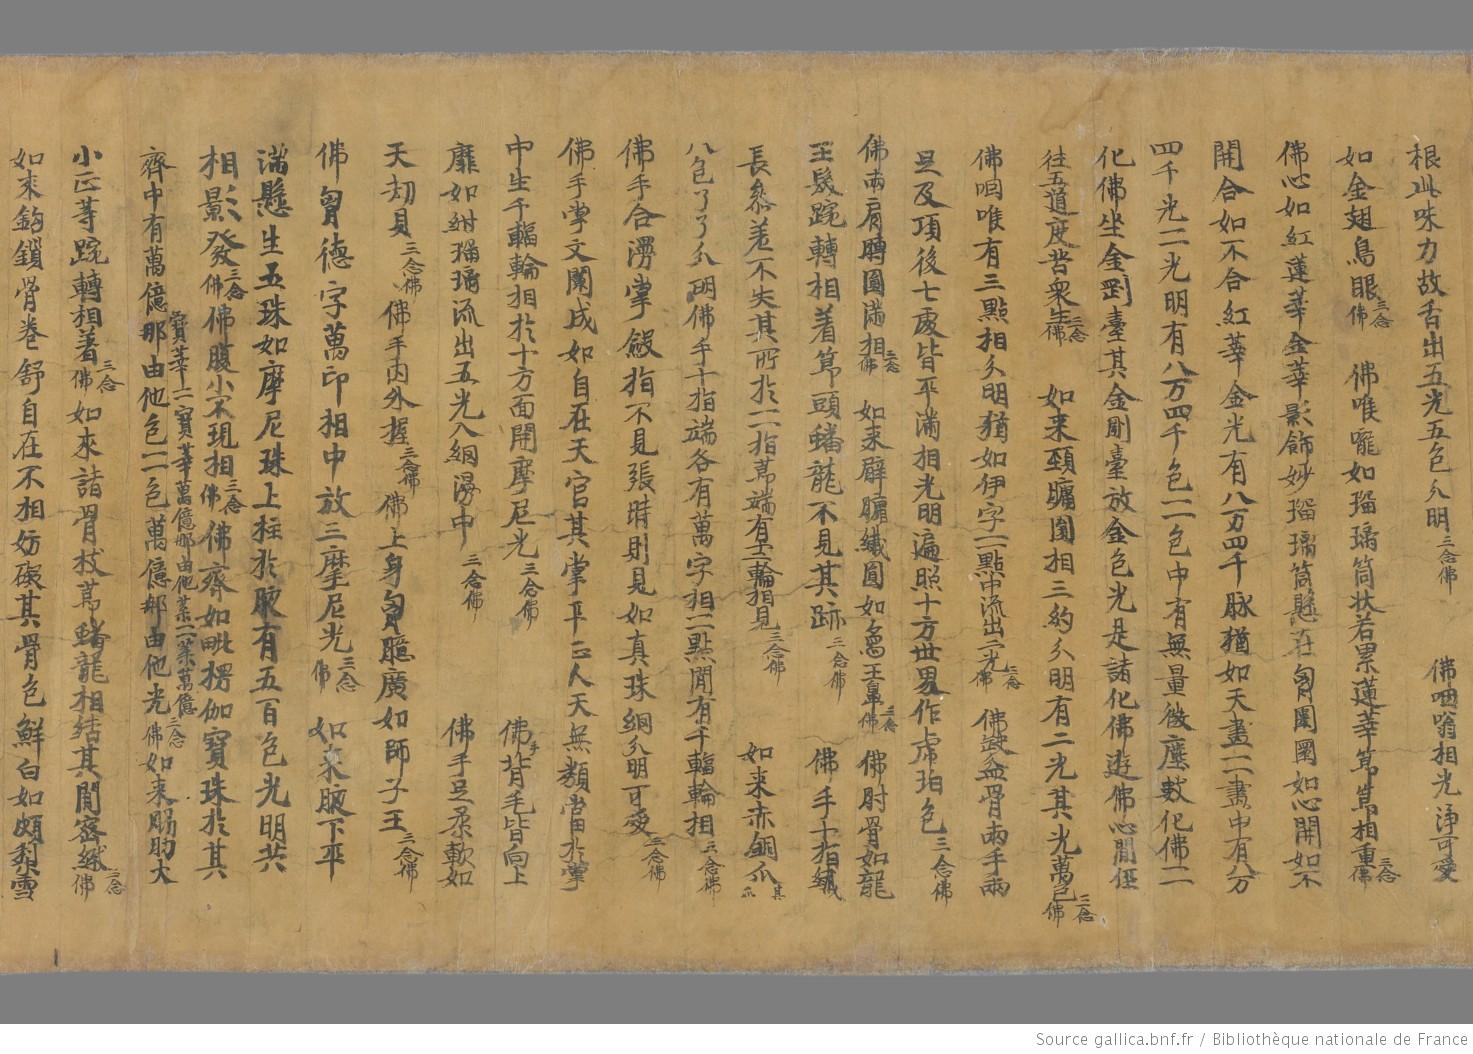 根此味力故舌出五光五色分明三念佛 佛咽嗡相光淨可愛
如金翅鳥眼三念佛 佛喉嚨如瑠璃筒状若累蓮華節節相重三念佛
佛心如紅蓮華金華影飾妙瑠璃筒懸在胷闺圀如心開如不
開合如不合紅華金光有八万四千脉猶如天畫一一畫中有八分
四千光一一光明有八万四千色一一色中有無量微塵數化佛一一
化佛坐金剛臺其金剛臺放金色光是諸化佛遊佛心間
往五道度苦衆生三念佛 如来頸圎相三約分明有二光其光萬色三念佛
佛咽喉有三點相分明猶如伊字一一點中流出二光三念佛 佛骨兩手兩
足及項後七處皆平滿相光明遍照十方世界作虎珀色三念佛
佛兩肩圎滿相三念佛 如来臂纎圓如象王鼻三念佛 佛肘骨如龍
王髮踠轉相着節頭蟠龍不見其跡三念佛 佛手十指纎
長叅差不失其所於一一指莭端有十二輪相見三念佛 如来赤銅爪其爪
八色了了分明佛手十指端各有萬字相一一點間有千輻輪相三念佛
佛手合湧掌縵指不見張時則見如真珠網分明可愛三念佛
佛手掌文闕成如自在天宮其掌平正人天無類當於掌
中生千輻輪相於十方面開摩尼光三念佛 佛手背毛皆向上
靡如紺瑠璃流出五光入網湧中三念佛 佛手足柔軟如
天刼貝三念佛 佛手内外握三念佛 佛上身胷臆廣如師子王三念佛
佛胷德字萬印相中放三摩尼光三念佛 如来腋下平
滿懸生五珠如摩尼珠上柱於腋有五百色光明共
相影發三念佛 佛腹小不現相三念佛 佛齊如毗楞伽寳珠於其
齊中有萬億那由他寳華一一寳華萬億那由他葉一一葉萬億那由他色一一色萬億那由他光三念佛 如来肠肋大
小正等踠轉相著三念佛 如來諸骨枝莭蟠龍相結其間密緻三念佛
如来鈎鎖骨卷舒自在不相妨礙其骨色鮮白如頗梨雪
Source gallica.bnf.fr / Bibliothèque nationale de France